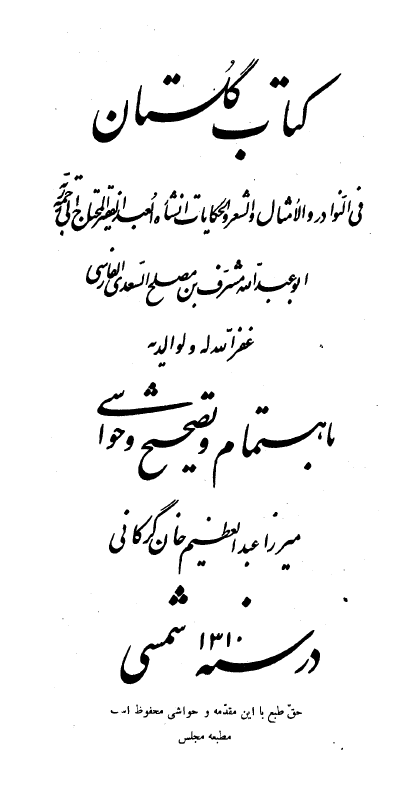 کتاب گلستان
فی النوادر والأمثال والشعر والحکایات انشاه العبد الفقیر المحتاج الی رحمة ربّه
ابو عبدالله مشرّف بن مصلح السّعدی الفارسی
غفر الله له و لوالدیه
باهتمام و تصحیح و حواشی
میرزا عبدالعظیم خان گرکانی
در سنه ۱۳۱۰ شمسی
حقّ طبع با این مقدّمه و حواشی محفوظ است
مطبعه مجلس